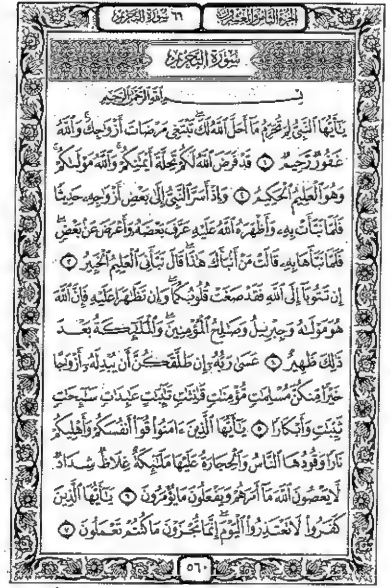 الجزء الثامن والعشرون ٦٦ سورة التحريم
سورة التحريم
بسم الله الرحمن الرحيم
يَـٰٓأَيُّهَا ٱلنَّبِىُّ لِمَ تُحَرِّمُ مَآ أَحَلَّ ٱللَّهُ لَكَۖ تَبْتَغِى مَرْضَاتَ أَزْوَٰجِكَۚ وَٱللَّهُ
غَفُورٌ رَّحِيمٌ ۝١ قَدْ فَرَضَ ٱللَّهُ لَكُمْ تَحِلَّةَ أَيْمَـٰنِكُمْۚ وَٱللَّهُ مَوْلَىٰكُمْۖ
وَهُوَ ٱلْعَلِيمُ ٱلْحَكِيمُ ۝٢ وَإِذْ أَسَرَّ ٱلنَّبِىُّ إِلَىٰ بَعْضِ أَزْوَٰجِهِۦ حَدِيثًا
فَلَمَّا نَبَّأَتْ بِهِۦ وَأَظْهَرَهُ ٱللَّهُ عَلَيْهِ عَرَّفَ بَعْضَهُۥ وَأَعْرَضَ عَنۢ بَعْضٍۖ
فَلَمَّا نَبَّأَهَا بِهِۦ قَالَتْ مَنْ أَنۢبَأَكَ هَـٰذَاۖ قَالَ نَبَّأَنِىَ ٱلْعَلِيمُ ٱلْخَبِيرُ ۝٣
إِن تَتُوبَآ إِلَى ٱللَّهِ فَقَدْ صَغَتْ قُلُوبُكُمَاۖ وَإِن تَظَـٰهَرَا عَلَيْهِ فَإِنَّ ٱللَّهَ
هُوَ مَوْلَىٰهُ وَجِبْرِيلُ وَصَـٰلِحُ ٱلْمُؤْمِنِينَۖ وَٱلْمَلَـٰٓئِكَةُ بَعْدَ
ذَٰلِكَ ظَهِيرٌ ۝٤ عَسَىٰ رَبُّهُۥٓ إِن طَلَّقَكُنَّ أَن يُبْدِلَهُۥٓ أَزْوَٰجًا
خَيْرًا مِّنكُنَّ مُسْلِمَـٰتٍ مُّؤْمِنَـٰتٍ قَـٰنِتَـٰتٍ تَـٰٓئِبَـٰتٍ عَـٰبِدَٰتٍ سَـٰٓئِحَـٰتٍ
ثَيِّبَـٰتٍ وَأَبْكَارًا ۝٥ يَـٰٓأَيُّهَا ٱلَّذِينَ ءَامَنُوا۟ قُوٓا۟ أَنفُسَكُمْ وَأَهْلِيكُمْ
نَارًا وَقُودُهَا ٱلنَّاسُ وَٱلْحِجَارَةُ عَلَيْهَا مَلَـٰٓئِكَةٌ غِلَاظٌ شِدَادٌ
لَّا يَعْصُونَ ٱللَّهَ مَآ أَمَرَهُمْ وَيَفْعَلُونَ مَا يُؤْمَرُونَ ۝٦ يَـٰٓأَيُّهَا ٱلَّذِينَ
كَفَرُوا۟ لَا تَعْتَذِرُوا۟ ٱلْيَوْمَۖ إِنَّمَا تُجْزَوْنَ مَا كُنتُمْ تَعْمَلُونَ ۝٧
٥٦٠